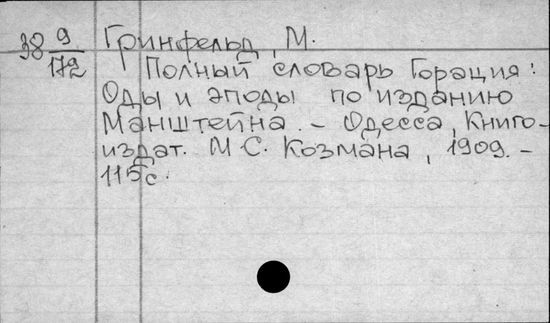 38 9/172 Гринфельд, М.
Полный словарь Горация:
Оды и эподы по изданию
Манштейна. - Одесса, Книго-
издат. М.С. Козмана, 1909. -
115с.